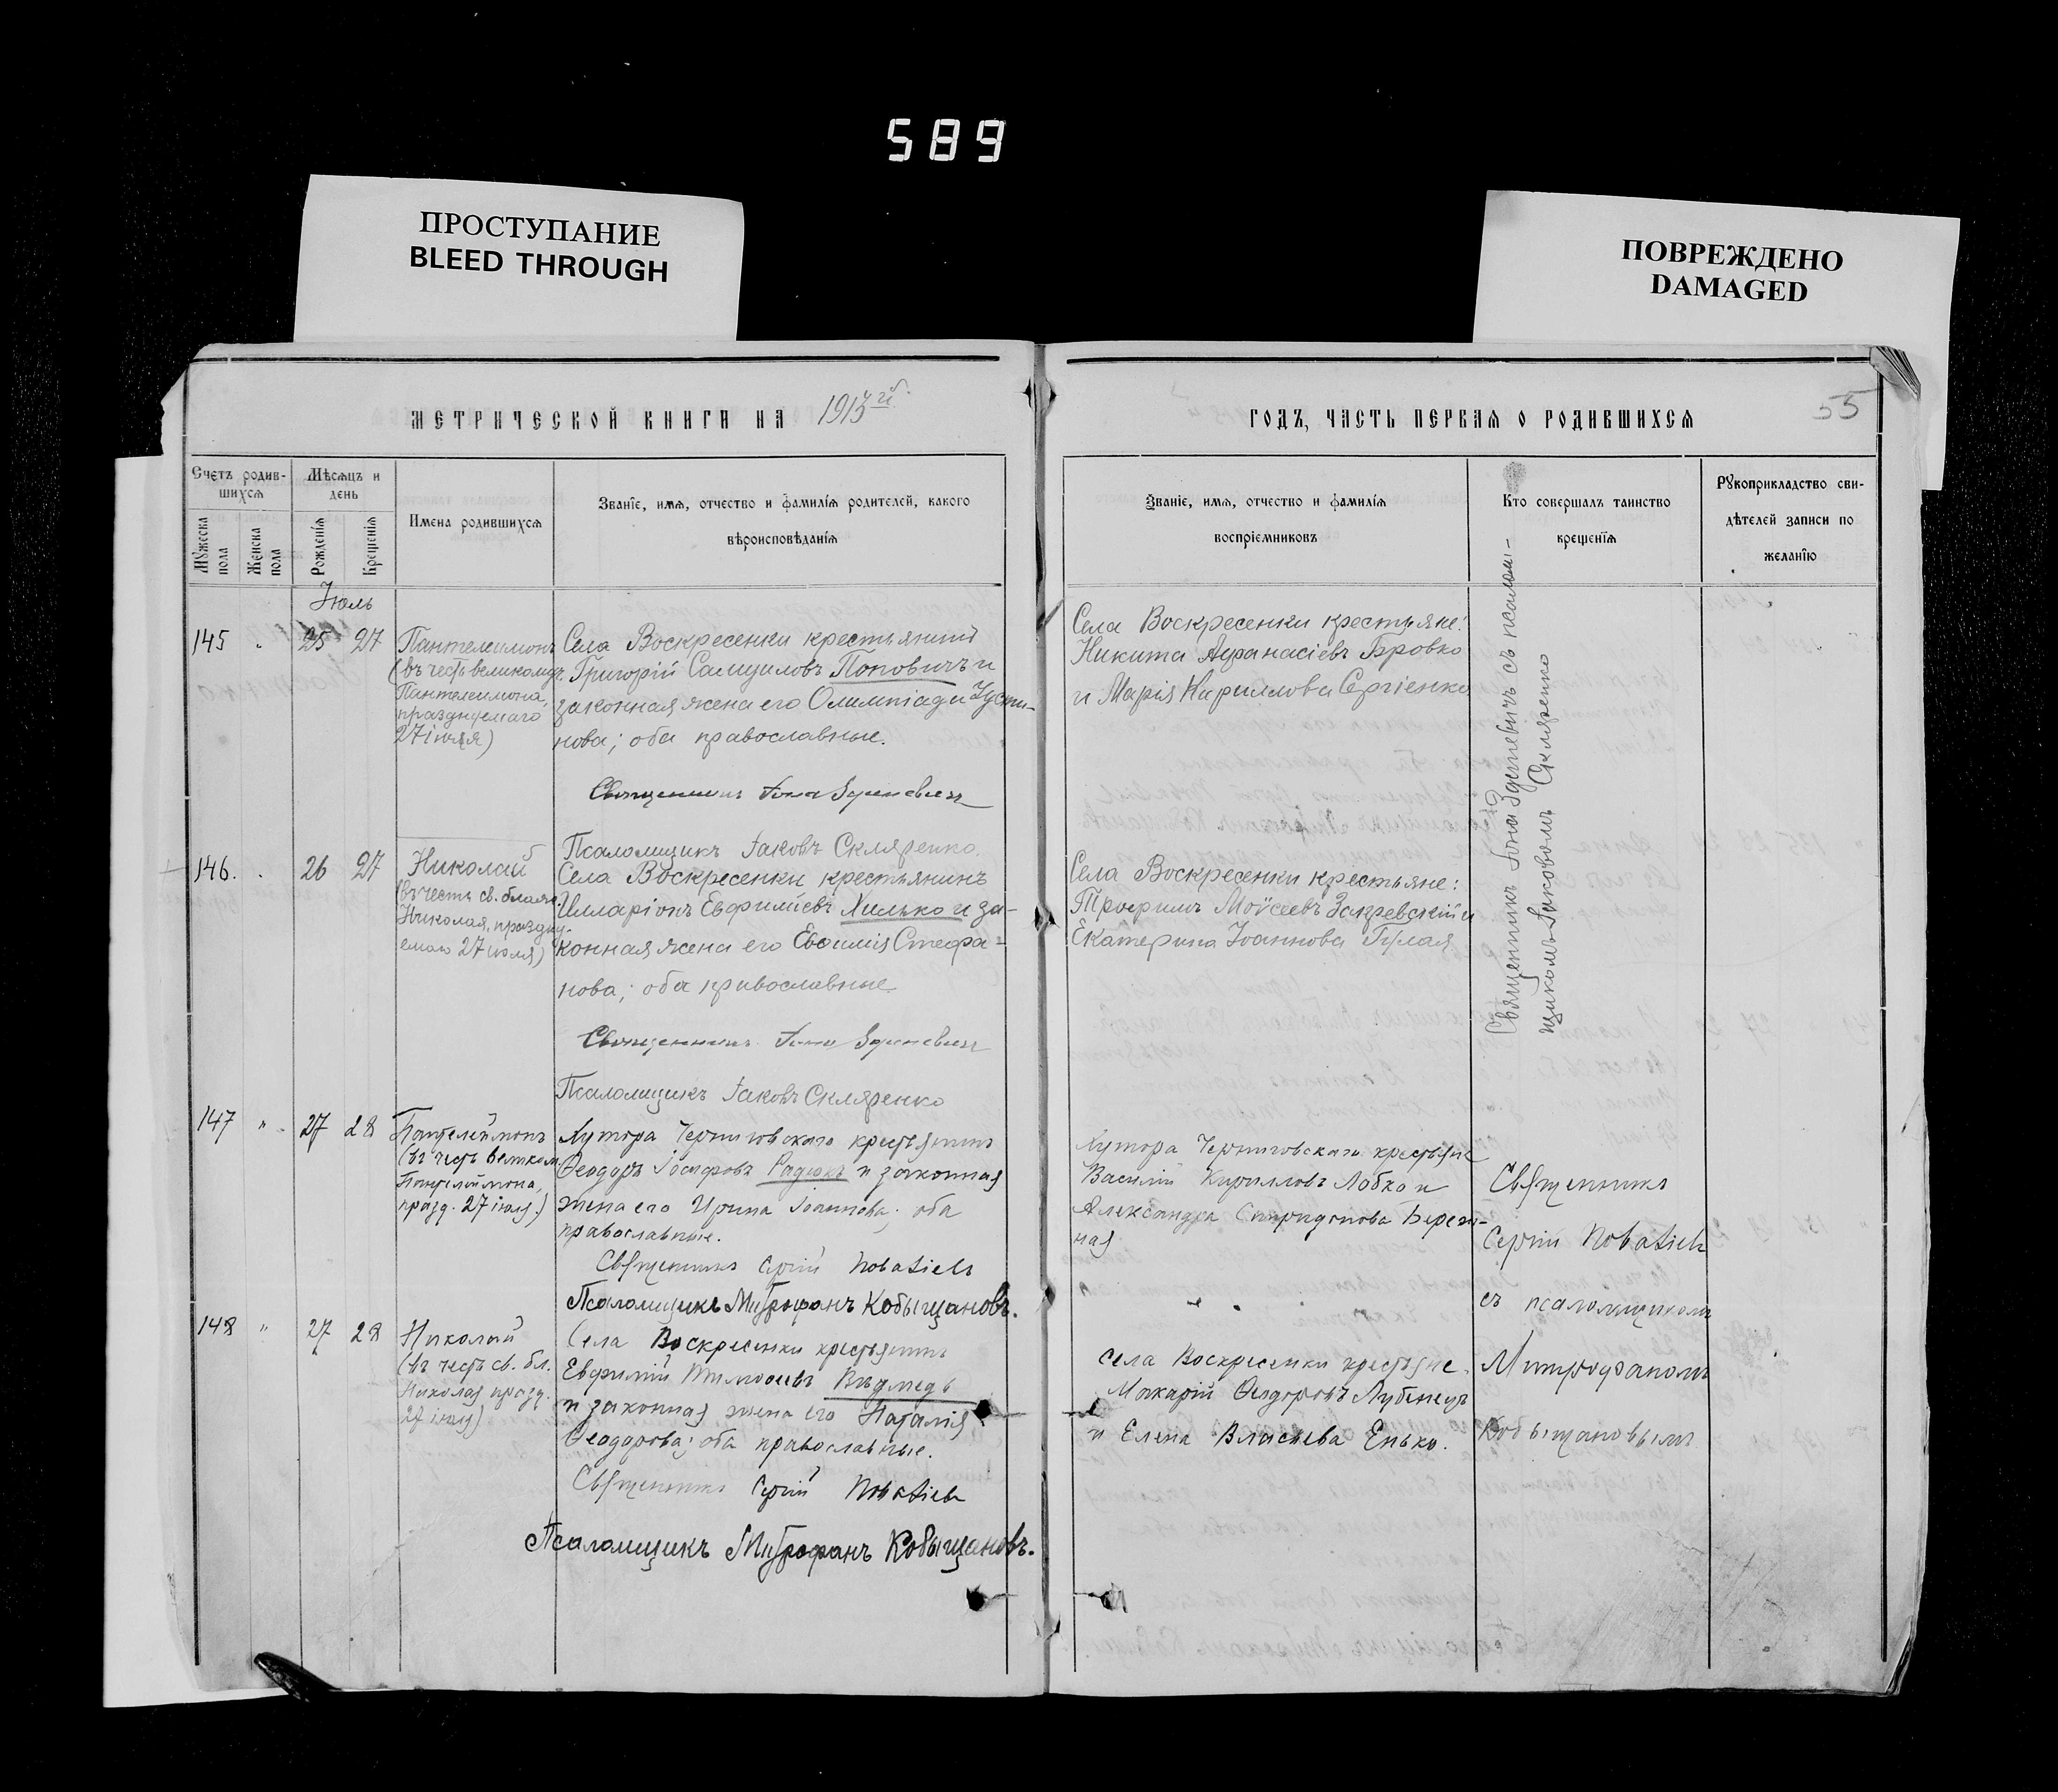 589
ПРОСТУПАНИЕ
BLEED THROUGH
ПОВРЕЖДЕНО
DAMAGED
МЕТРИЧЕСКОЙ КНИГИ НА 1913й
Счетъ родив-
шихся
Мѣсяцъ и
день
Мужеска
пола
Женска
пола
Рожденія
Крещенія
Имена родившихся
Званіе, имя, отчество и фамилія родителей, какого
вѣроисповѣданія
Іюль
145 " 25 27
Пантелеимонъ
(въ честь великомуч.
Пантелеимона,
празднуемаго
27 іюля)
Села Воскресенки крестьянинъ
Григорій Самуиловъ Поповичъ и
законная жена его Олимпіада Іусти-
нова; оба православные.
Священникъ Іона Зуриневич
Псаломщикъ Іаковъ Скляренко.
146. " 26 27
Николай
(въ честь св. блаж.
Николая, праздну-
емаго 27 іюля)
Села Воскресенки крестьянинъ
Илларіонъ Евфиміевъ Хилько и за-
конная жена его Евѳимія Стефа-
нова; оба православные.
Священникъ Іона
Псаломщикъ Іаковъ Скляренко
147 " 27 28
Пантелеймонъ
(въ честь великом.
Пантелеймона,
празд. 27 іюля.)
Хутора Черниговскаго крестьянинъ
Ѳеодоръ Іосифовъ Радюкъ и законная
жена его Ирина Іоаннова; оба
православные.
Священникъ Сергій
Псаломщикъ Митрофанъ Кобыщановъ.
148 " 27 28
Николай
(въ честь св. бл.
Николая празд.
27 іюля)
Села Воскресенки крестьянинъ
Евфимій Тимоѳеевъ Ведмедь
и законная жена его Наталія
Ѳеодорова; оба православные.
Священникъ Сергій
Псаломщикъ Митрофанъ Кобыщановъ.
ГОДЪ, ЧАСТЬ ПЕРВАЯ О РОДИВШИХСЯ
55
Званіе, имя, отчество и фамилія
воспріемниковъ
Кто совершалъ таинство
крещенія
Рукоприкладство сви-
дѣтелей записи по
желанію
Села Воскресенки крестьяне:
Никита Аѳанасіевъ Бровко
и Марія Кириллова Сергіенко
Села Воскресенки крестьяне:
Трофимъ Моѵсеевъ Закревскій и
Екатерина Іоаннова Гулая
Священникъ Іона съ псалом-
щикомъ Іаковомъ Скляренко
Хутора Черниговскаго крестьяне
Василій Кирилловъ Лобко и
Александра Спиридонова Береж-
ная
Села Воскресенки крестьяне
Макарій Ѳеодоровъ Лубенецъ
и Елена Власіева Енько.
Священникъ
Сергій
съ псаломщикомъ
Митрофаномъ
Кобыщановымъ